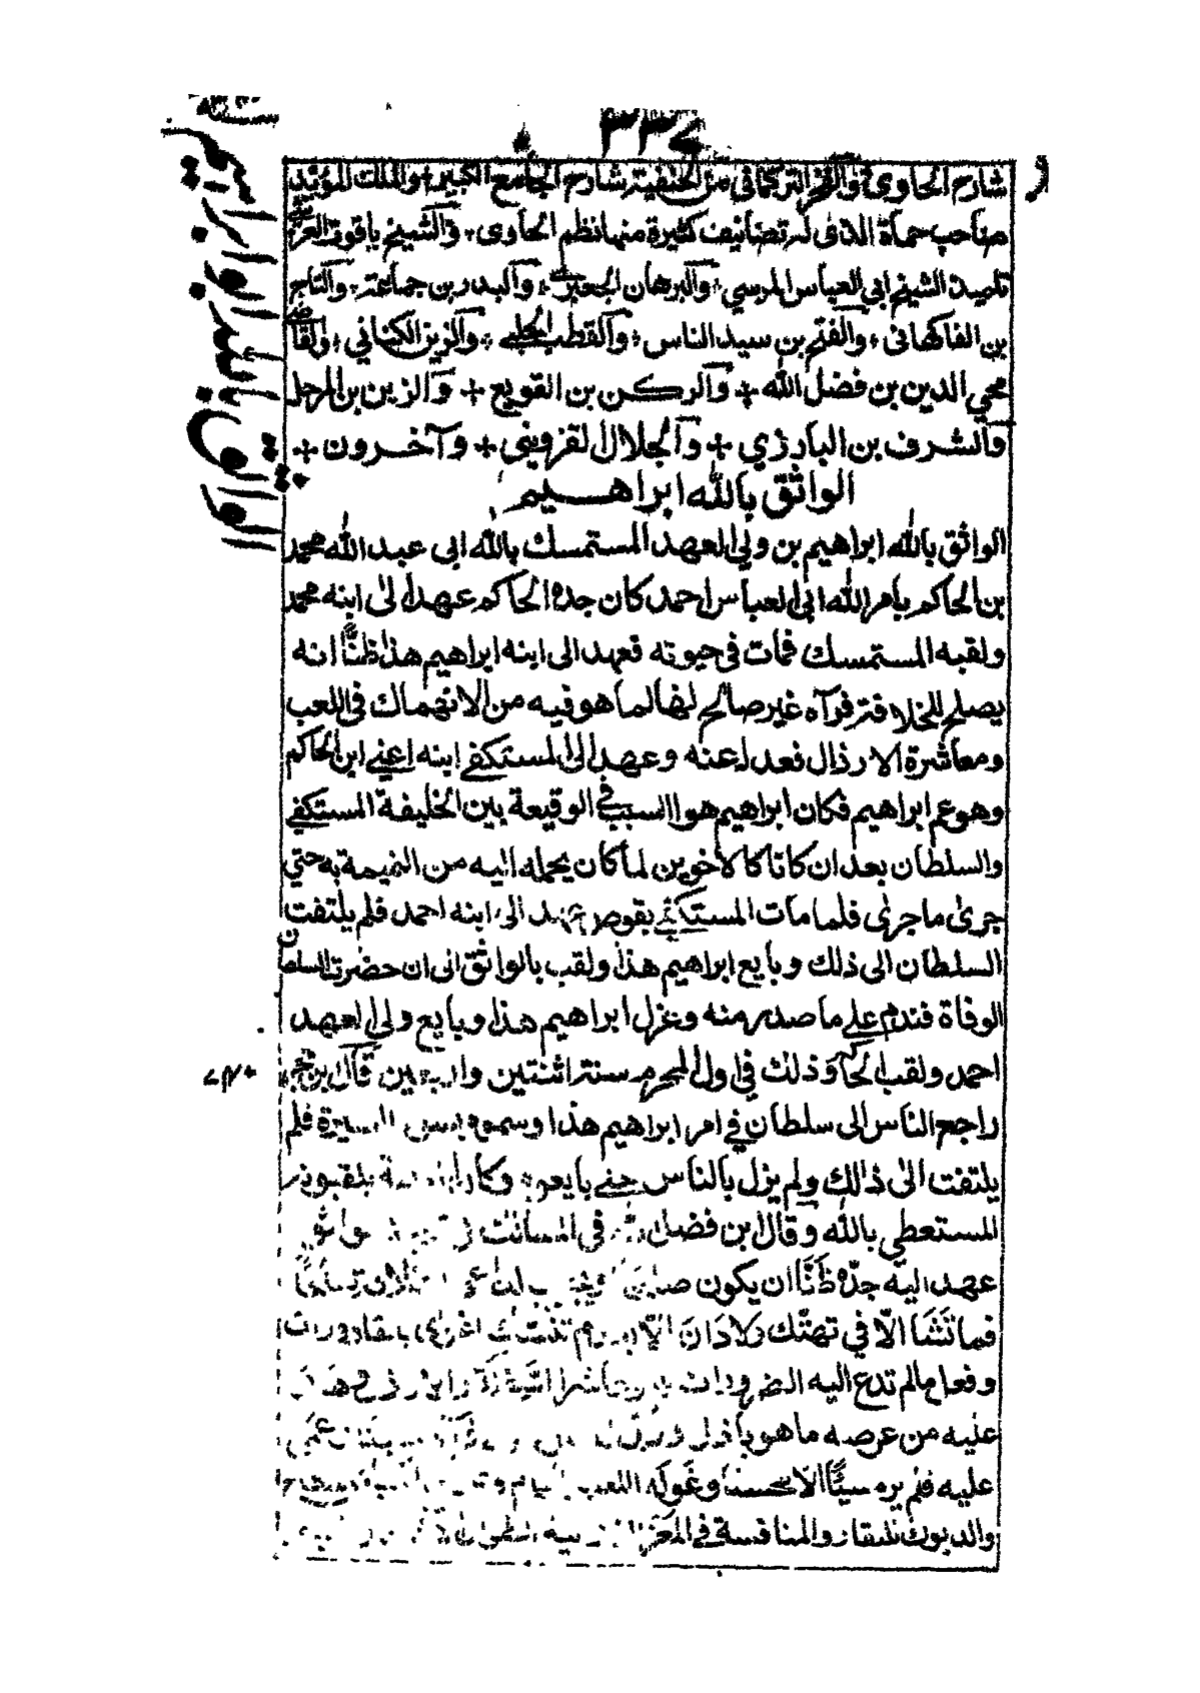 ٣٣٧
شارح الحاوى والفخر التركمانى من الحنفية شارح الجامع الكبير والملك المؤيد
صاحب حماة الذى له تصانيف كثيرة منها نظم الحاوى، والشيخ ياقوت العرشى
تلميذ الشيخ ابى العباس المرسى، والبرهان الجعبرى، والبدر بن جماعة، والتاج
بن الفاكهانى، والفتح بن سيد الناس، والقطب الحلبى، والزين الكنانى، والقاضى
محيى الدين بن فضل الله + والركن بن القويع + والزين بن المرحل
والشرف بن البارزي + والجلال القزوينى + وآخرون +
الواثق بالله ابراهيم
الواثق بالله ابراهيم بن ولى العهد المستمسك بالله ابى عبد الله محمد
بن الحاكم بامر الله ابى العباس احمد كان جده الحاكم عهد الى ابنه محمد
ولقبه المستمسك فمات فى حيوته فعهد الى ابنه ابراهيم هذا ظنًّا انه
يصلح للخلافة فرآه غير صالح لها لما هو فيه من الانهماك فى اللعب
ومعاشرة الارذال فعدل عنه وعهد الى المستكفى ابنه اعنى ابن الحاكم
وهو عم ابراهيم فكان ابراهيم هو السبب فى الوقيعة بين الخليفة المستكفى
والسلطان بعد ان كانا كالاخوين لما كان يحمله اليه من النميمة به حتى
جرى ما جرى فلما مات المستكفى بقوص عهد الى ابنه احمد فلم يلتفت
السلطان الى ذلك وبايع ابراهيم هذا ولقب بالواثق الى ان حضرت السلطان
الوفاة فندم على ما صدر منه وعزل ابراهيم هذا وبايع ولى العهد
احمد ولقب الحاكم وذلك فى اول المحرم سنة اثنتين واربعين قال ابن حجر
راجع الناس السلطان فى امر ابراهيم هذا وسموه بسوء السيرة فلم
يلتفت الى ذلك ولم يزل بالناس حتى بايعوه وكان العامة يلقبونه
المستعطى بالله وقال ابن فضل الله فى المسالك
عهد اليه جدّه ظنًّا ان يكون صالحًا
فما نشا الّا فى تهتّك
وفعل ما لم تدع اليه الضرورات
عليه من عرضه ما هو باذل
عليه فلم يره سيّئًا الا حسنًا وغوله اللعب
والديوك للنقار والمنافسة فى المعز
الواثق بالله ابو ابراهيم